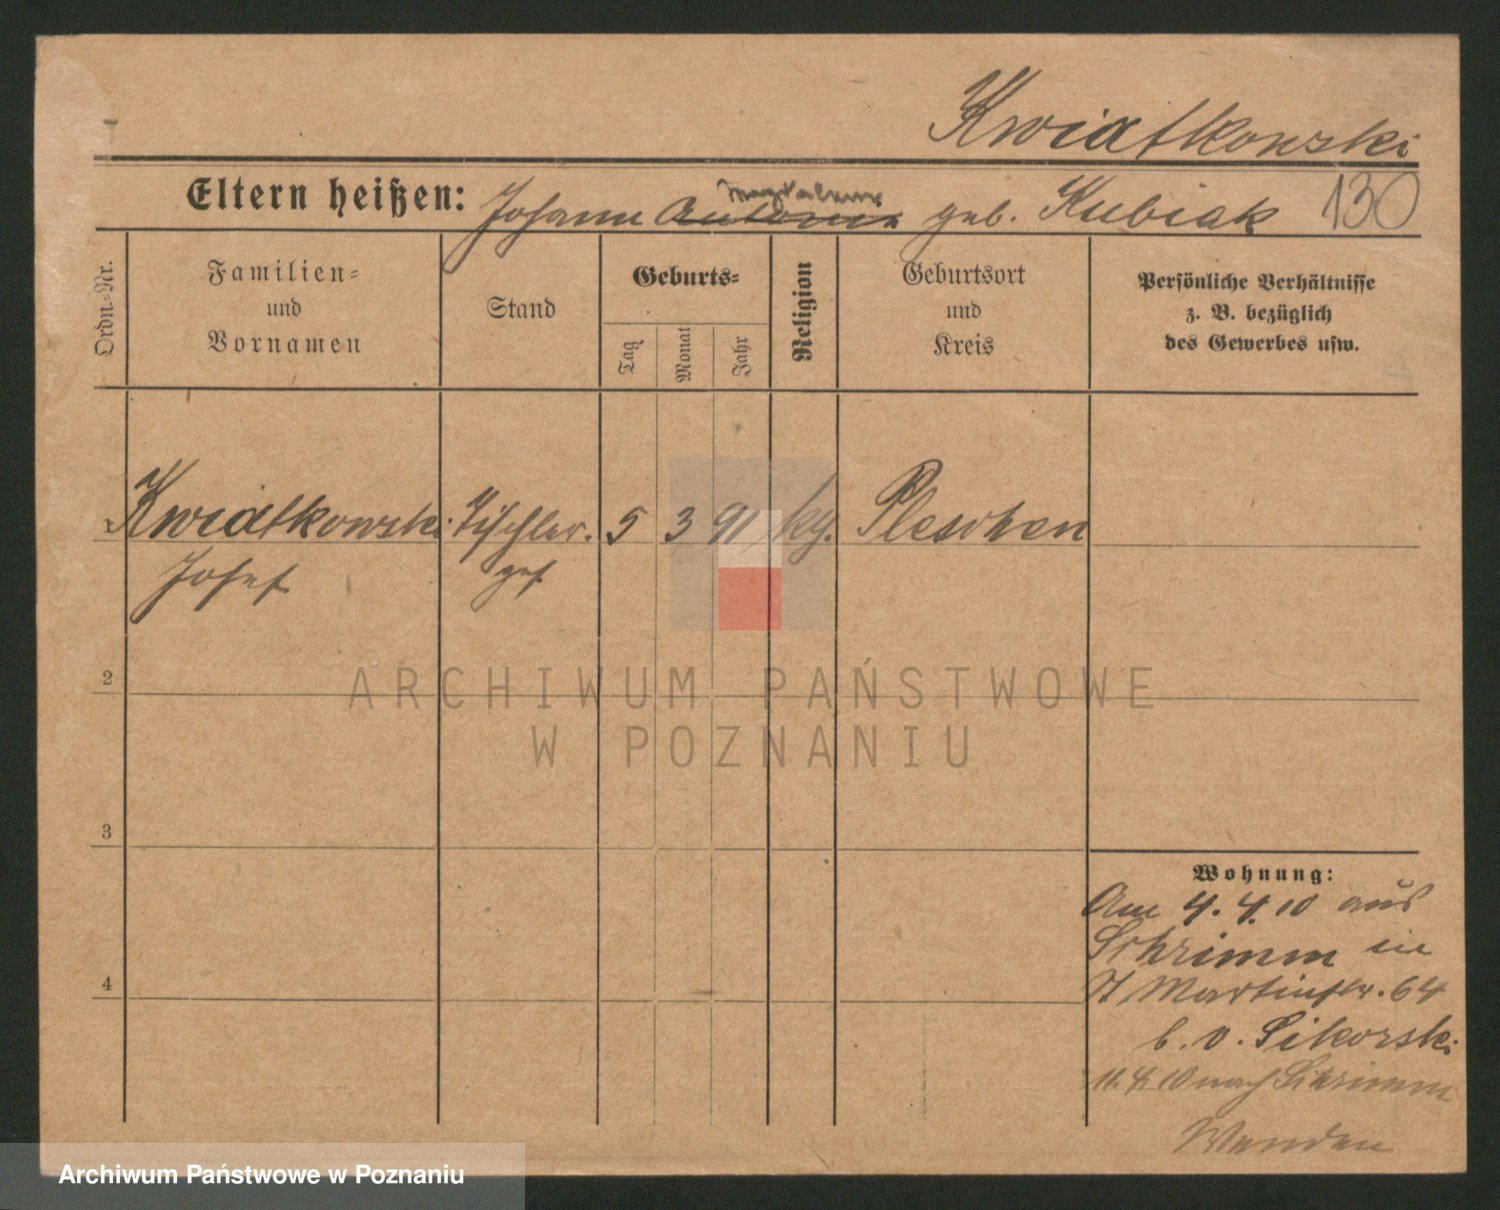 Kwiatkowski
Eltern heißen: Johann Antonie Magdalena geb. Kubiak 130
Ordn.=Nr.
Familien=
und
Vornamen
Stand
Geburts=
Tag
Monat
Jahr
Religion
Geburtsort
und
Kreis
Persönliche Verhältnisse
z. B. bezüglich
des Gewerbes usw.
1 Kwiatkowski Tischler. 5 3 91 kg. Pleschen
Josef ges.
2
3
4
Wohnung:
Am 4.4.10 aus
Schrimm in
St Martinstr. 64
b. v. Sikorski
11.4.10 nach Schrimm
ARCHIWUM PAŃSTWOWE
W POZNANIU
Archiwum Państwowe w Poznaniu